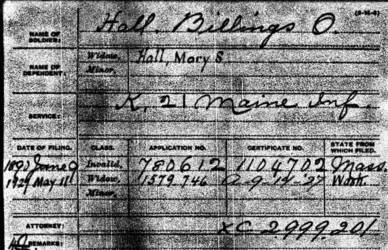 Hall, Billings O.
NAME OF SOLDIER:
NAME OF DEPENDENT: Widow, Hall, Mary S.
Minor,
SERVICE: K, 21 Maine Inf.
DATE OF FILING. CLASS. APPLICATION NO. CERTIFICATE NO. STATE FROM WHICH FILED.
June 9 Invalid, 780612 1104702 Mass.
1927 May 11 Widow, 1579746 a-9-14-27 Wash.
Minor,
ATTORNEY: XC 2999201
REMARKS: